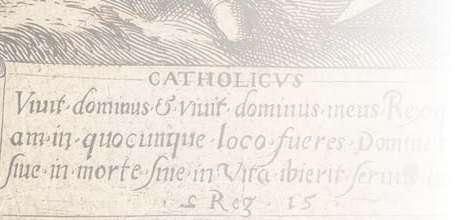 CATHOLICVS
Viuit · dominus · & viuit · dominus · meus Rex q
am · in · quocunque · loco · fueres · Domine
siue · in · morte · siue · in · Vita · ibi erit · seruus
2 Reg · 15 ·